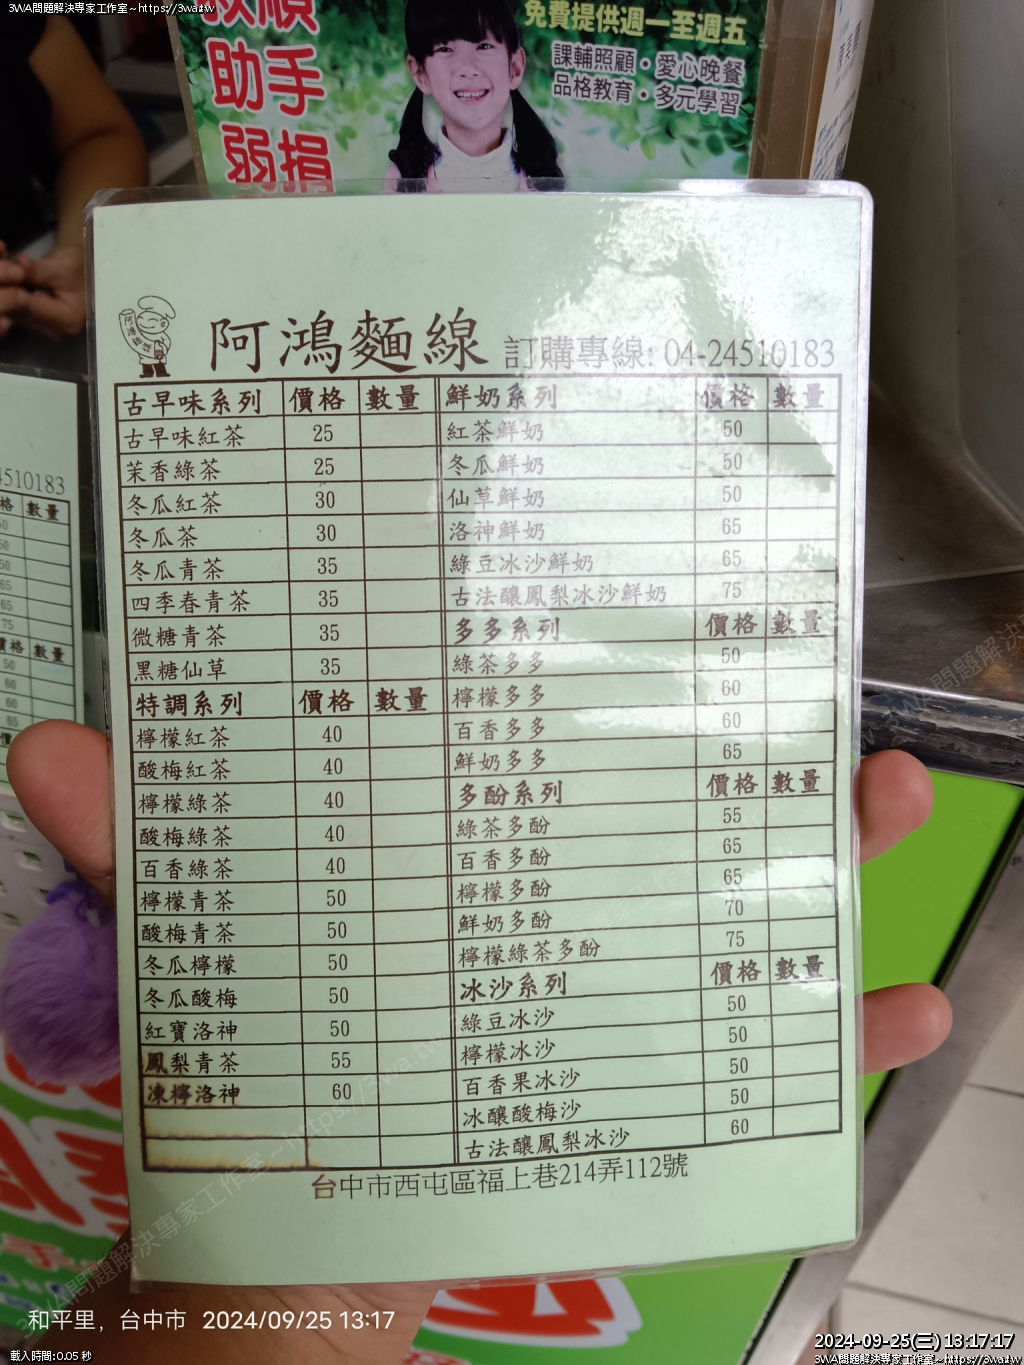 3WA問題解決專家工作室~https://3wa.tw
助手
弱捐
免費提供週一至週五
課輔照顧・愛心晚餐
品格教育・多元學習
阿鴻麵線 訂購專線: 04-24510183
古早味系列 價格 數量
古早味紅茶 25
茉香綠茶 25
冬瓜紅茶 30
冬瓜茶 30
冬瓜青茶 35
四季春青茶 35
微糖青茶 35
黑糖仙草 35
特調系列 價格 數量
檸檬紅茶 40
酸梅紅茶 40
檸檬綠茶 40
酸梅綠茶 40
百香綠茶 40
檸檬青茶 50
酸梅青茶 50
冬瓜檸檬 50
冬瓜酸梅 50
紅寶洛神 50
鳳梨青茶 55
凍檸洛神 60
鮮奶系列 價格 數量
紅茶鮮奶 50
冬瓜鮮奶 50
仙草鮮奶 50
洛神鮮奶 65
綠豆冰沙鮮奶 65
古法釀鳳梨冰沙鮮奶 75
多多系列 價格 數量
綠茶多多 50
檸檬多多 60
百香多多 60
鮮奶多多 65
多酚系列 價格 數量
綠茶多酚 55
百香多酚 65
檸檬多酚 65
鮮奶多酚 70
檸檬綠茶多酚 75
冰沙系列 價格 數量
綠豆冰沙 50
檸檬冰沙 50
百香果冰沙 50
冰釀酸梅沙 50
古法釀鳳梨冰沙 60
台中市西屯區福上巷214弄112號
4510183
格 數量
價格 數量
50
60
60
65
和平里，台中市 2024/09/25 13:17
2024-09-25(三) 13:17:17
載入時間:0.05 秒
3WA問題解決專家工作室~https://3wa.tw